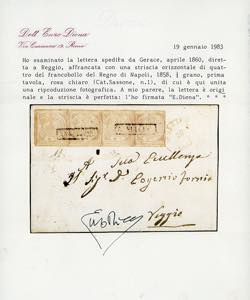 Dott. Enzo Diena
19 gennaio 1983
Ho esaminato la lettera spedita da Gerace, aprile 1860, diret-
ta a Reggio, affrancata con una striscia orizzontale di quat-
tro del francobollo del Regno di Napoli, 1858, ½ grano, prima
tavola, rosa chiaro (Cat.Sassone, n.1), di cui è qui unita
una riproduzione fotografica. A mio parere, la lettera è origi
nale e la striscia è perfetta: l'ho firmata "E.Diena". * * *
Sua Eccellenza
Reggio